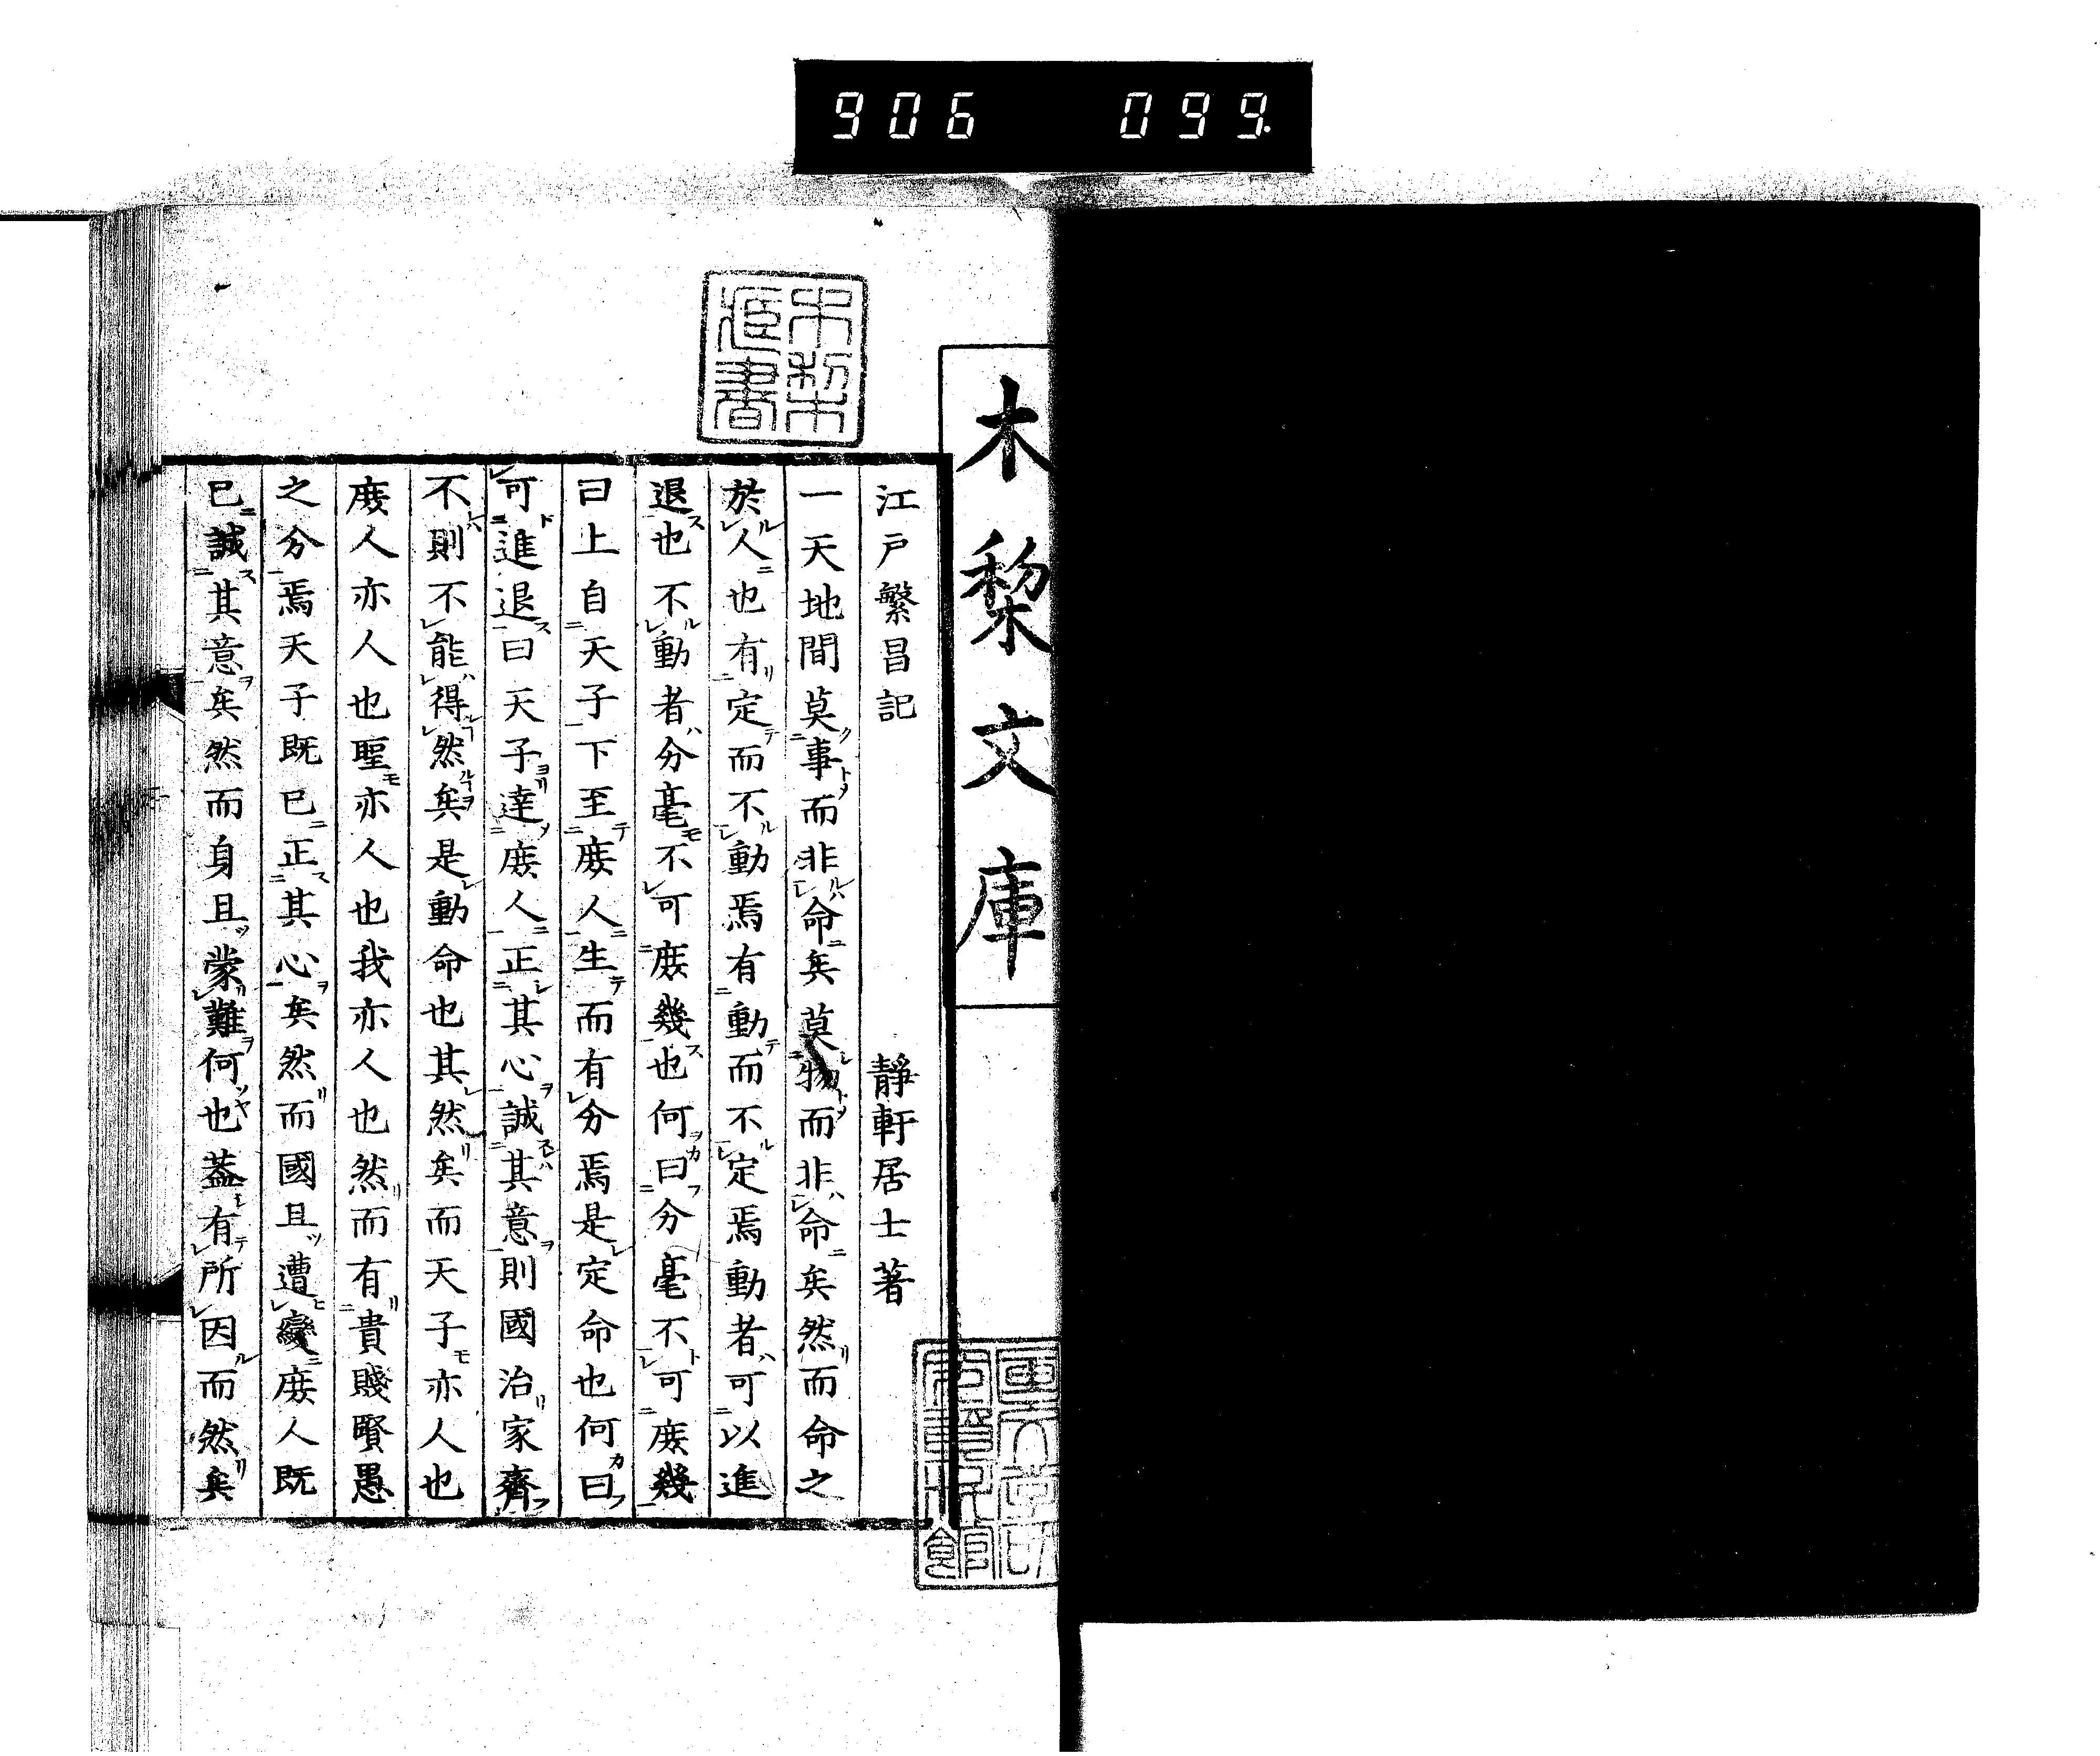 906 099
木棃文庫
木棃藏書
江戸繁昌記 靜軒居士著
一天地間莫事而非命矣莫物而非命矣然而命之
於人也有定而不動焉有動而不定焉動者可以進
退也不動者分毫不可庶幾也何曰分毫不可庶幾
曰上自天子下至庶人生而有分焉是定命也何曰
可進退曰天子達庶人正其心誠其意則國治家齊
不則不能得然矣是動命也其然矣而天子亦人也
庶人亦人也聖亦人也我亦人也然而有貴賤賢愚
之分焉天子既已正其心矣然而國且遭變庶人既
已誠其意矣然而身且蒙難何也蓋有所因而然矣